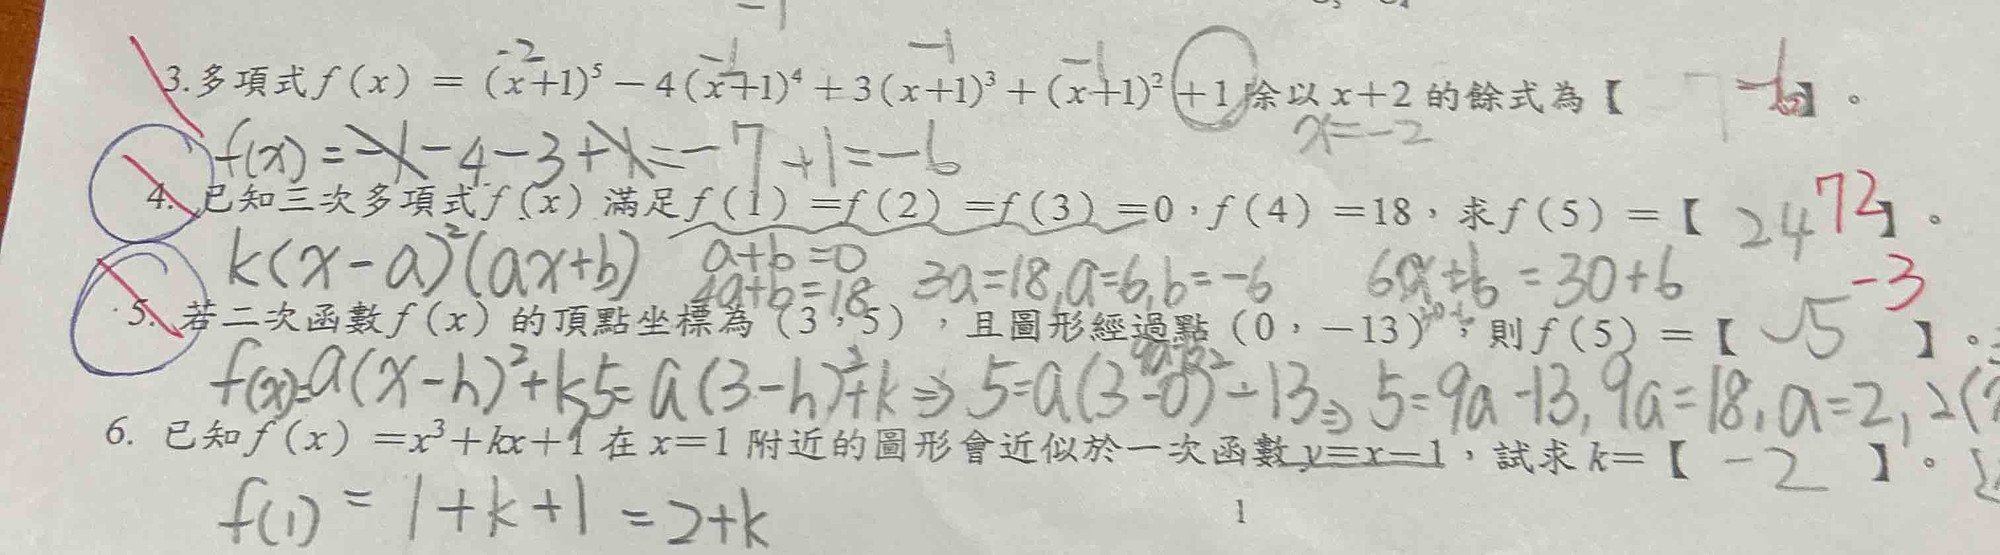 -1
-2 -1 -1 -1
3.多項式 f(x) = (x+1)⁵-4(x+1)⁴+3(x+1)³+(x+1)²+1除以 x+2 的餘式為【 7 -6 】。
x=-2
f(x)=-1-4-3+1=-7+1=-6
4. 已知三次多項式 f(x) 滿足 f(1)=f(2)=f(3)=0,f(4)=18,求 f(5)=【 24 72 】。
k(x-a)²(ax+b) a+b=0 3a=18,a=6,b=-6 =30+6
4a+b=18
5. 若二次函數 f(x) 的頂點坐標為(3,5),且圖形經過點(0,-13),則 f(5)=【 5 -3 】。
f(x)=a(x-h)²+k 5=a(3-h)²+k⇒5=a(3-0)²-13⇒5=9a-13,9a=18,a=2,2(
6. 已知 f(x)=x³+kx+1 在 x=1 附近的圖形會近似於一次函數 y=x-1,試求 k=【 -2 】。
f(1)=1+k+1=2+k
1